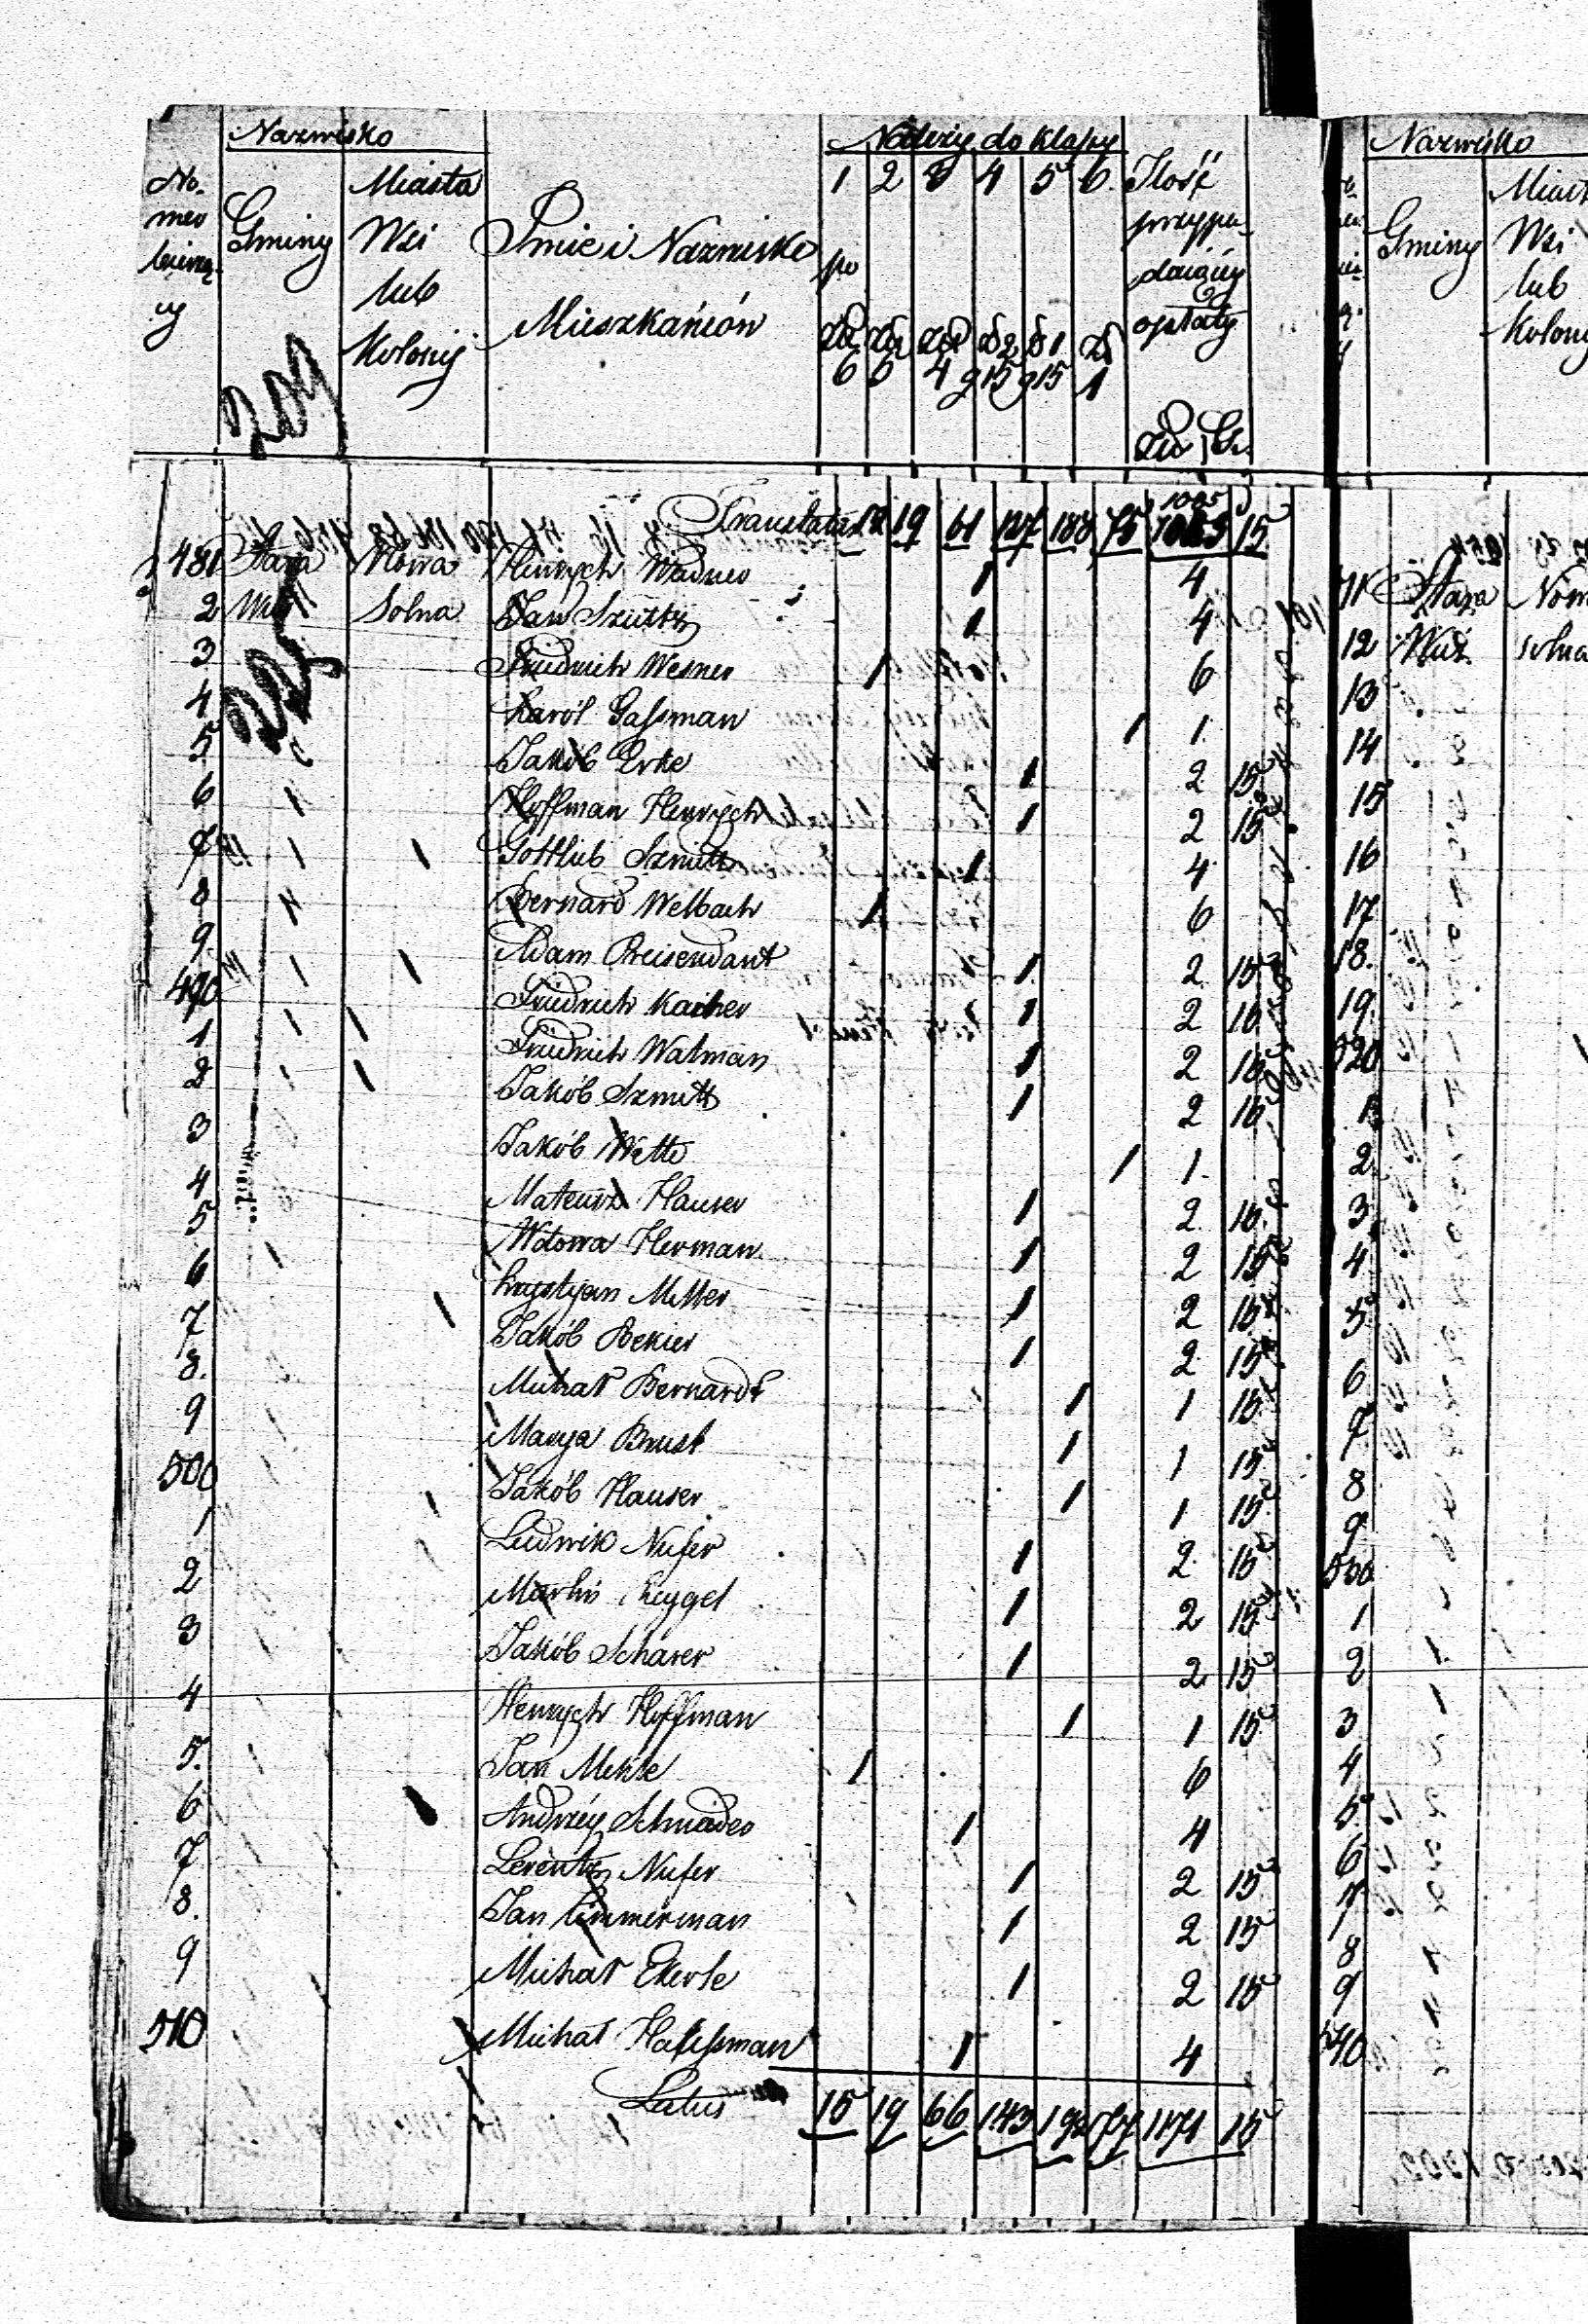 Nazwisko
Należy do klassy
Nomer bieżący
Gminy
Miasta Wsi lub Kolonij
Imie i Nazwisko Mieszkańców
1 2 3 4 5 6
po
Zł 6 Zł 5 Zł 4 Zł 2 g 15 Zł 1 g 15 Zł 1
Ilość przypadaiący opłaty
Zł Gr
209
Transلatus 12 19 61 127 188 75 1085 15
481 Stara Nowa Henrych Wadner 1 4
2 Wieś Solna Jan Szultz 1 4
3 Friedrich Wesner 1 6
4 Karól Gassman 1 1
5 Jakób Erke 1 2 15
6 Hoffman Henrych 1 2 15
7 Gottlieb Szmitt 1 4
8 Bernard Welbach 1 6
9 Adam Breisendant 1 2 15
490 Friedrich Kacher 1 2 15
1 Friedrich Walman 1 2 15
2 Jakób Szmitt 1 2 15
3 Jakób Wette 1 1
4 Mateusz Hauser 1 2 15
5 Wdowa Herman 1 2 15
6 Krystyan Miller 1 2 15
7 Jakób Bekier 1 2 15
8 Michał Bernardt 1 1 15
9 Marya Brust 1 1 15
500 Jakób Hauser 1 1 15
1 Ludwik Nufer 1 2 15
2 Marhin 1 2 15
3 Jakób Scharer 1 2 15
4 Henrych Hoffman 1 1 15
5 Jan Mehle 1 6
6 Andrzéy Schnaider 1 4
7 Lerentz Nufer 1 2 15
8 Jan Cimmerman 1 2 15
9 Michał Ekerle 1 2 15
510 Michał Haussman 1 4
Latus 15 19 66 143 192 77 1171 15
Nazwisko
Gminy
Miast
Wsi
lub
Kolony
11 Stara Now
12 Wieś Solna
13
14
15
16
17
18
19
520
1
2
3
4
5
6
7
8
9
530
1
2
3
4
5
6
7
8
9
540